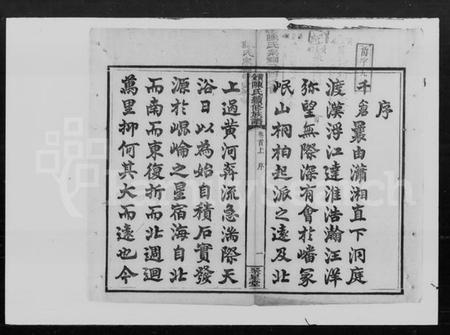 序
千倉曩由瀟湘直下洞庭
渡漢浮江達淮浩瀚汪洋
弥望無際深有會於嶓冢
岷山桐柏起派之遠及北
陳氏續修族譜
卷首上 序
一
上過黃河奔流急湍際天
浴日以為始自積石實發
源於崐崘之星宿海自北
而南而東復折而北週迴
萬里抑何其大而遠也今